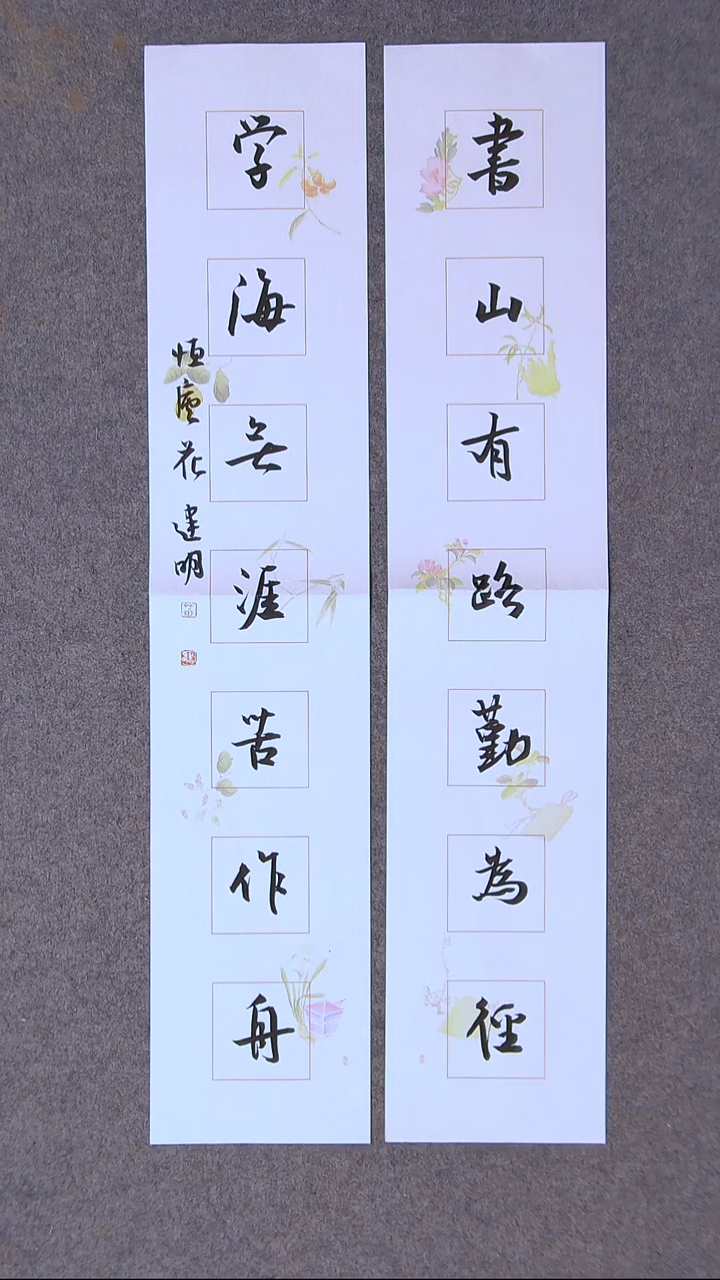 書山有路勤為徑
学海无涯苦作舟
恒庵花建明